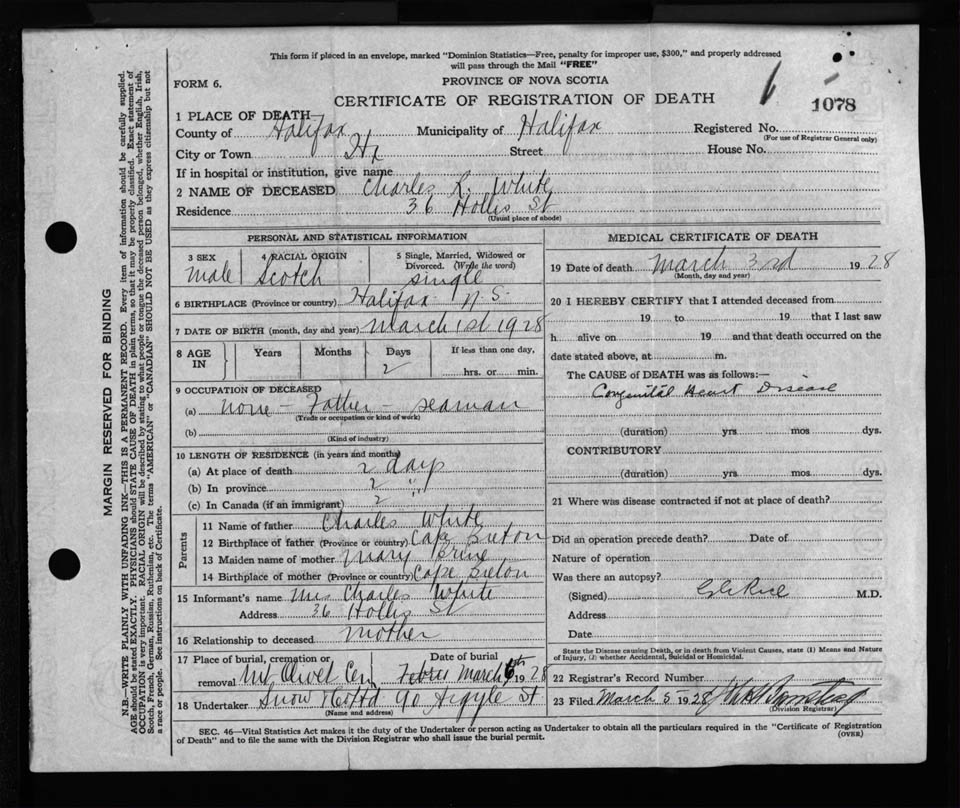 This form if placed in an envelope, marked "Dominion Statistics—Free, penalty for improper use, $300," and properly addressed
will pass through the Mail "FREE"
FORM 6.
PROVINCE OF NOVA SCOTIA
CERTIFICATE OF REGISTRATION OF DEATH
1078
1 PLACE OF DEATH
County of Halifax Municipality of Halifax Registered No.
(For use of Registrar General only)
City or Town Hx Street House No.
If in hospital or institution, give name
2 NAME OF DECEASED Charles L. White
Residence 36 Hollis St
(Usual place of abode)
PERSONAL AND STATISTICAL INFORMATION
3 SEX 4 RACIAL ORIGIN 5 Single, Married, Widowed or
Divorced. (Write the word)
male Scotch single
6 BIRTHPLACE (Province or country) Halifax N.S.
7 DATE OF BIRTH (month, day and year) March 1st 1928
8 AGE IN Years Months Days If less than one day,
2 hrs. or min.
9 OCCUPATION OF DECEASED
(a) none - Father - seaman
(Trade or occupation or kind of work)
(b)
(Kind of industry)
10 LENGTH OF RESIDENCE (in years and months)
(a) At place of death 2 days
(b) In province 2 "
(c) In Canada (if an immigrant) 2
Parents
11 Name of father Charles White
12 Birthplace of father (Province or country) Cape Breton
13 Maiden name of mother Mary
14 Birthplace of mother (Province or country) Cape Breton
15 Informant's name Mrs Charles White
Address 36 Hollis St
16 Relationship to deceased mother
17 Place of burial, cremation or removal Date of burial
Mt Olivet Cem March 6th 1928
18 Undertaker Snow & Co Ltd 90 Argyle St
(Name and address)
MEDICAL CERTIFICATE OF DEATH
19 Date of death March 3rd 1928
(Month, day and year)
20 I HEREBY CERTIFY that I attended deceased from
19 to 19 that I last saw
h alive on 19 and that death occurred on the
date stated above, at m.
The CAUSE of DEATH was as follows:—
Congenital Heart Disease
(duration) yrs. mos. dys.
CONTRIBUTORY
(duration) yrs. mos. dys.
21 Where was disease contracted if not at place of death?
Did an operation precede death? Date of
Nature of operation
Was there an autopsy?
(Signed) M.D.
Address
Date
State the Disease causing Death, or in death from Violent Causes, state (1) Means and Nature
of Injury, (2) whether Accidental, Suicidal or Homicidal.
22 Registrar's Record Number
23 Filed March 5 1928
(Division Registrar)
SEC. 46—Vital Statistics Act makes it the duty of the Undertaker or person acting as Undertaker to obtain all the particulars required in the "Certificate of Registration
of Death" and to file the same with the Division Registrar who shall issue the burial permit.
(OVER)
MARGIN RESERVED FOR BINDING
N.B.—WRITE PLAINLY WITH UNFADING INK—THIS IS A PERMANENT RECORD. Every item of information should be carefully supplied.
AGE should be stated EXACTLY. PHYSICIANS should STATE CAUSE OF DEATH in plain terms, so that it may be properly classified. Exact statement of
OCCUPATION is very important. RACIAL ORIGIN will be described by stating to what people or tongue the deceased person belonged, whether English, Irish,
Scotch, French, German, Russian, Ruthenian, etc. The terms "AMERICAN" or "CANADIAN" SHOULD NOT BE USED as they express citizenship but not
a race or people. See instructions on back of Certificate.